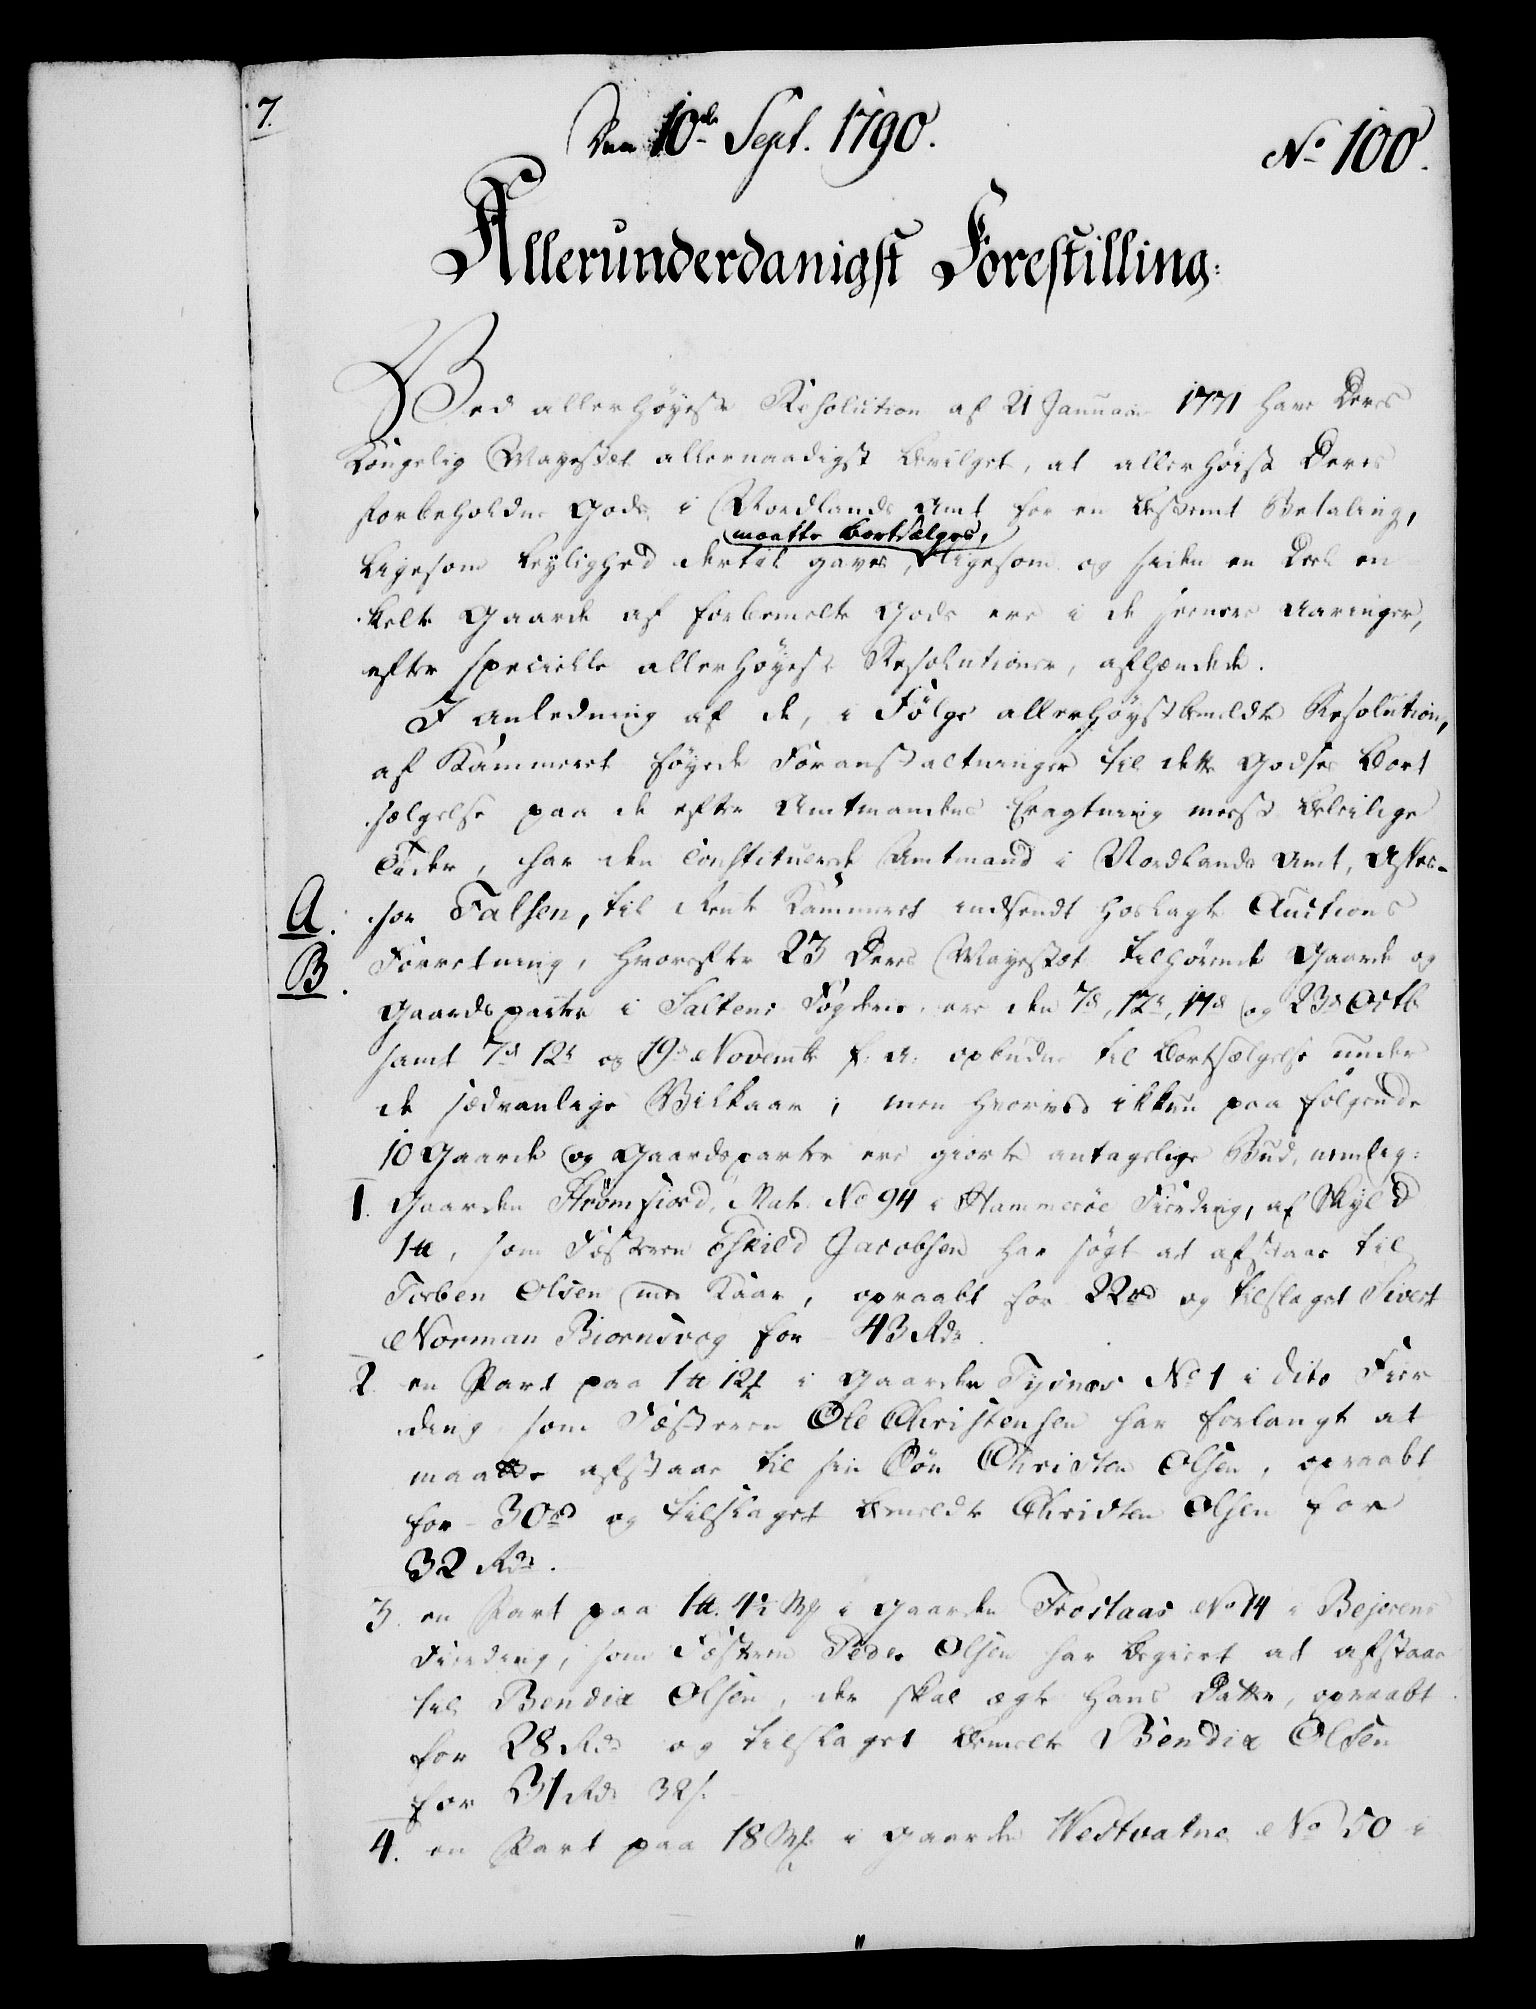 7.
Den 10de Sept. 1790.
No 100.
Allerunderdanigst Forestilling:
Ved allerhøyeste Resolution af 21 Januar 1771 have Deres
Kongelig Mayestæt allernaadigst bevilget, at allerhøist Deres
forbeholdne Gods i Nordlands Amt for en bestemt Betaling,
maatte bortsælges,
ligesom leylighed dertil gaves, ligesom og siden en Deel en
kelte Gaarde af forbemelte Gods ere i de seenere Aaringer,
efter specielle allerhøyeste Resolutioner, afhændede.
I anledning af de, i Følge allerhøystbemeldte Resolution,
af Kammeret føyede Foranstaltninger til dette Godses Bort
sælgelse paa de efter Amtmandens Eragtning meest beleilige
Tider, har den Constituerede Amtmand i Nordlands Amt, Asses-
A. sor Falsen, til Rente Kammeret indsendt hoslagte Auctions
B. Forretning, hvorefter 23 Deres Mayestæt tilhørende Gaarde og
Gaardsparter i Saltens Fogderie, ere den 7de, 12te, 17de og 23de Octb
samt 7de 12te og 19de Novembr f: A: opbudne til Bortsælgelse under
de sædvanlige Vilkaar; men hvorved ikkun paa følgende
10 Gaarde og Gaardsparter ere giorte antagelige Bud, nemlig:
1. Gaarden Strømfiord, Matr. No 94 i Hammerøe Fierding, af Skyld
1 ℔, som Fæsteren Eskild Jacobsen har søgt at afstaae til
Torben Olsen mod Kaar, opraabt for 22 rd og tilslaget Sivert
Norman Biørnsvog for 43 Rdr.
2. en Part paa 1 ℔ 12 ℔ i Gaarden Tysnæs No 1 i dito Fier
ding som Fæsteren Ole Christensen har forlangt at
maatte afstaae til sin Søn Christen Olsen, opraabt
for 30 rd og tilslaget bemeldte Christen Olsen for
32 Rdr.
3. en Part paa 1 ℔. 4½ Mk i Gaarden Trostaas No 14 i Bejerens
Fierding, som Fæsteren Peder Olsen har begiert at afstaae
til Bendix Olsen, der skal ægte hans Datter, opraabt
for 28 Rdr og tilslaget bemelte Bendix Olsen
for 31 Rdr 32 s.
4. en Part paa 18 Mk i Gaarden Westvatne No 50 i